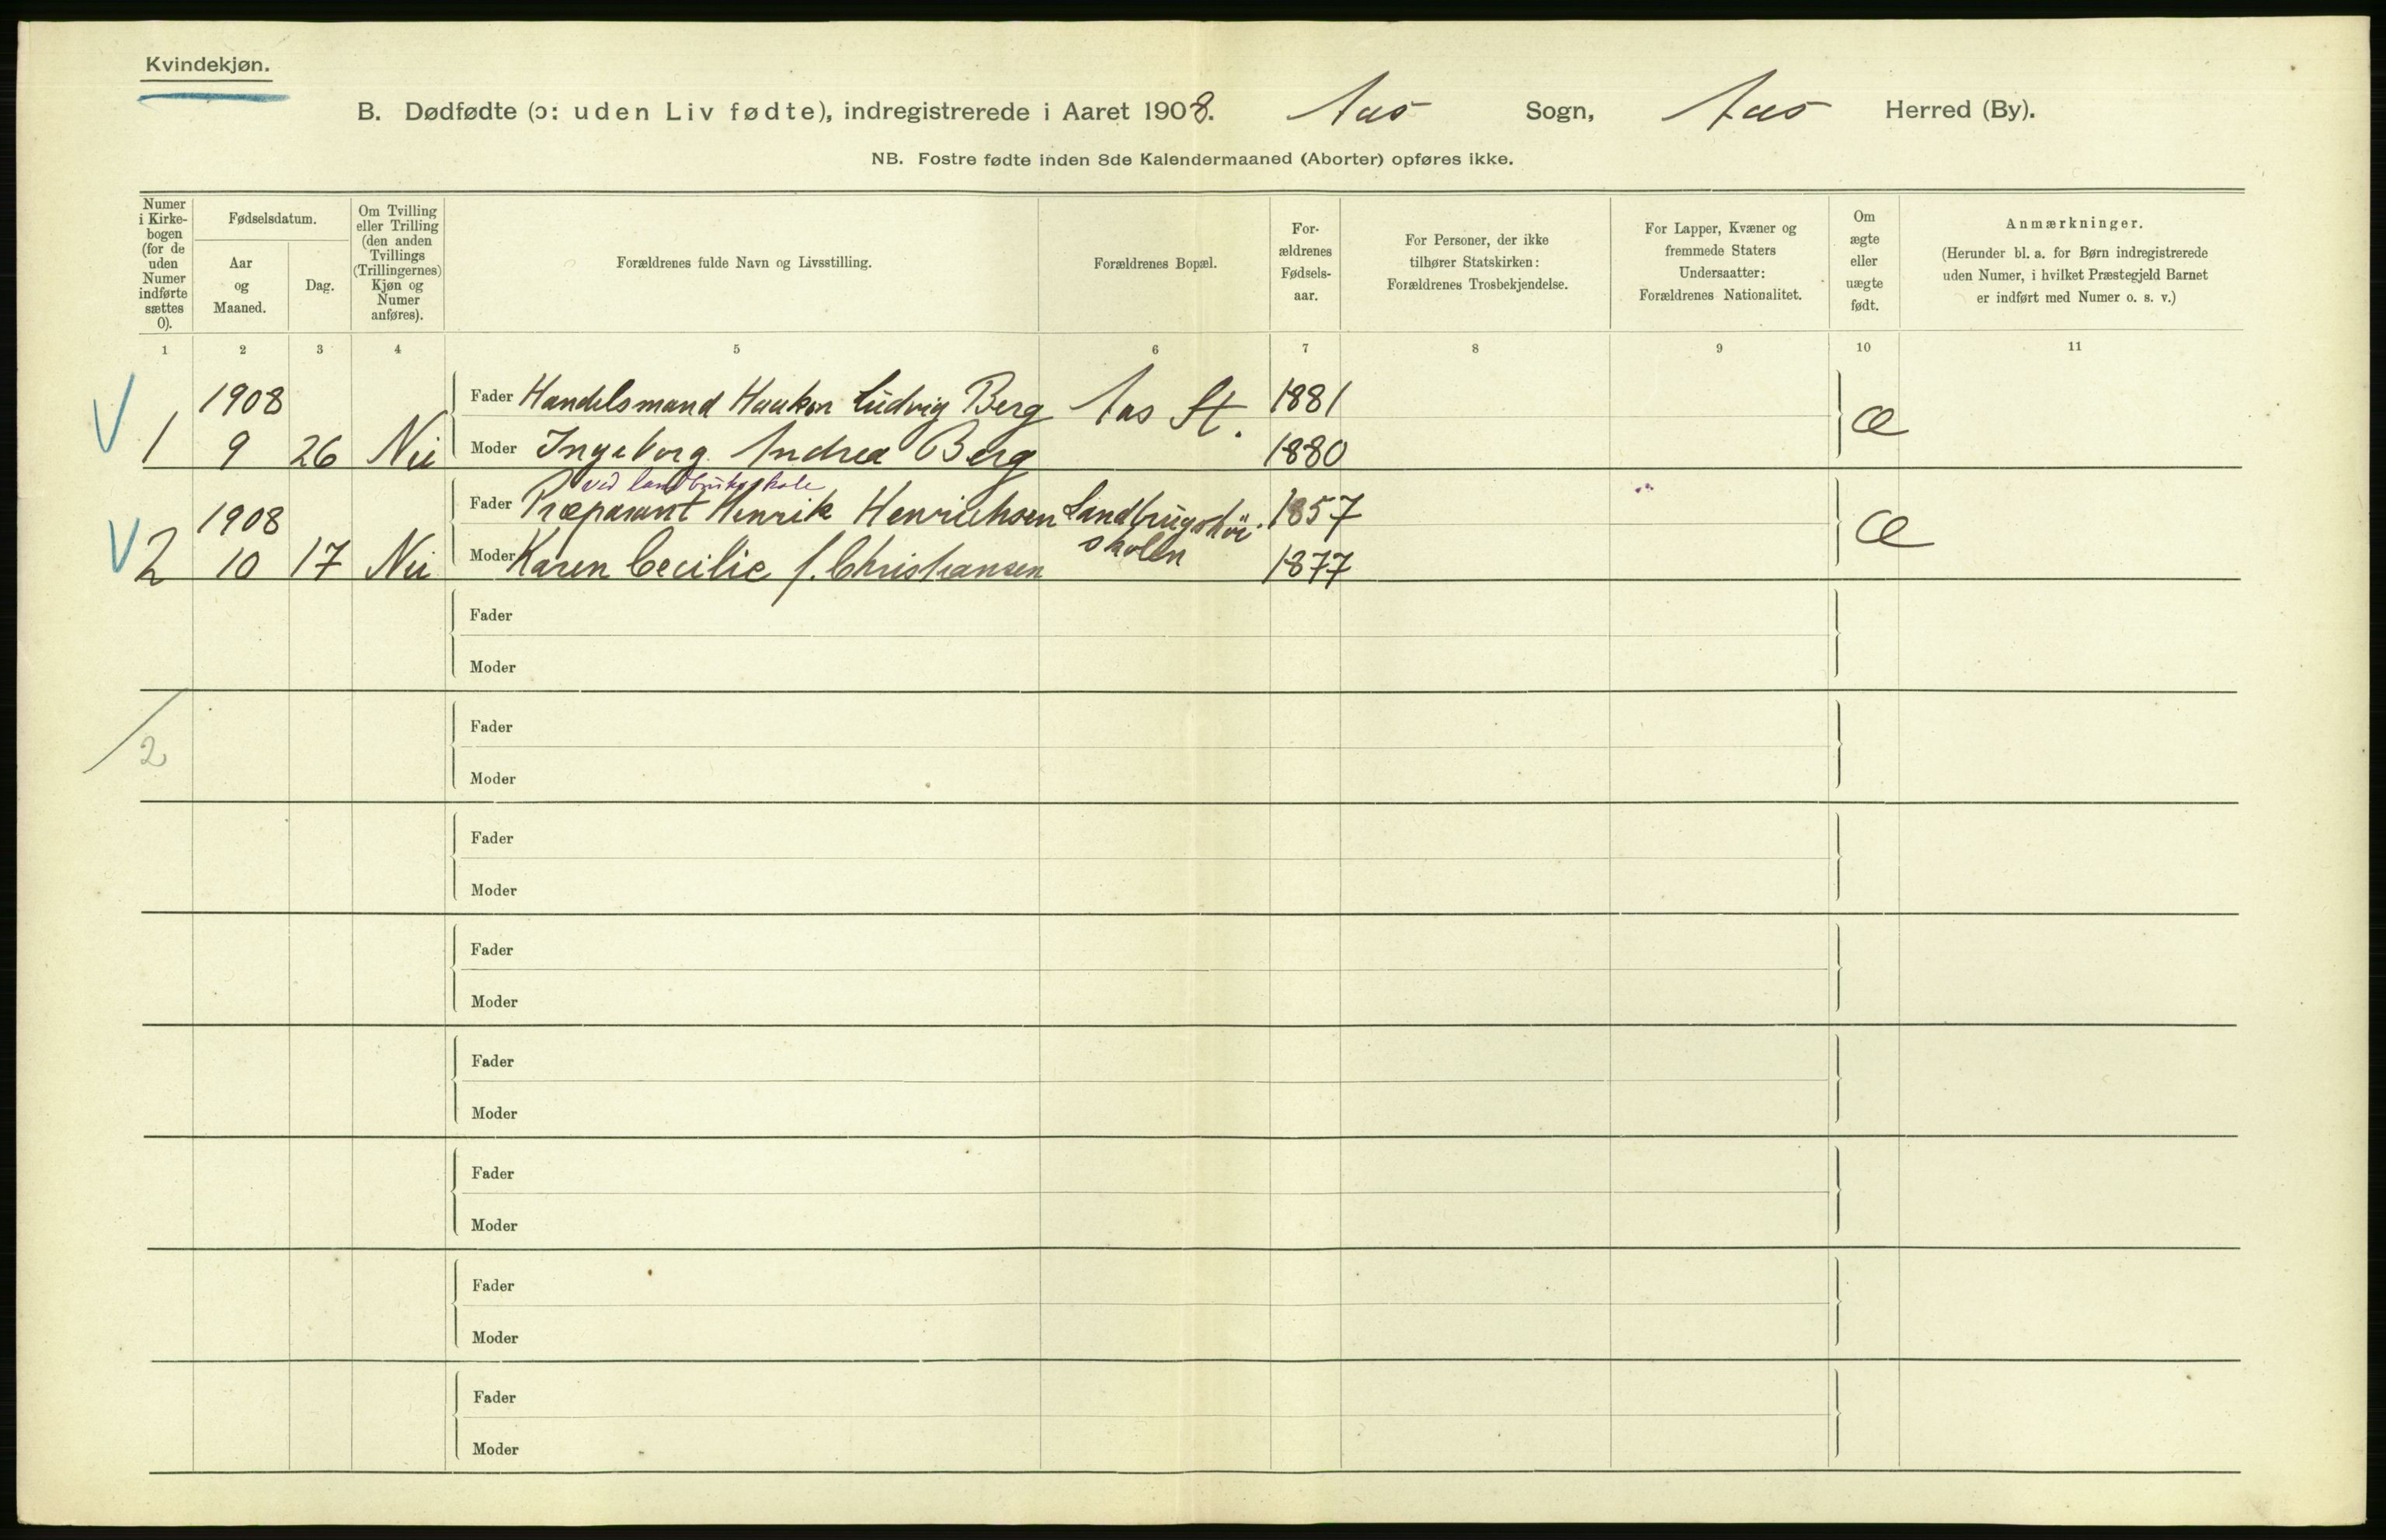 Kvindekjøn.
B. Dødfødte (ɔ: uden Liv fødte), indregistrerede i Aaret 1908. Aas Sogn, Aas Herred (By).
NB. Fostre fødte inden 8de Kalendermaaned (Aborter) opføres ikke.
Numer i Kirke-bogen (for de uden Numer indførte sættes 0).
Fødselsdatum.
Aar og Maaned.
Dag.
Om Tvilling eller Trilling (den anden Tvillings (Trillingernes) Kjøn og Numer anføres).
Forældrenes fulde Navn og Livsstilling.
Forældrenes Bopæl.
For-ældrenes Fødsels-aar.
For Personer, der ikke tilhører Statskirken: Forældrenes Trosbekjendelse.
For Lapper, Kvæner og fremmede Staters Undersaatter: Forældrenes Nationalitet.
Om ægte eller uægte født.
Anmærkninger.
(Herunder bl. a. for Børn indregistrerede uden Numer, i hvilket Præstegjeld Barnet er indført med Numer o. s. v.)
1 2 3 4 5 6 7 8 9 10 11
1908 Fader Handelsmand Haakon Ludvig Berg Aas St. 1881
1 9 26 Nei Moder Ingeborg Andrea Berg 1880 Æ
ved landbrukskole
1908 Fader Præparant Henrik Henrichsen Landbrugshøi- 1857
2 10 17 Nei Moder Karen Cecilie f. Christiansen skolen 1877 Æ
Fader
Moder
Fader
2
Moder
Fader
Moder
Fader
Moder
Fader
Moder
Fader
Moder
Fader
Moder
Fader
Moder